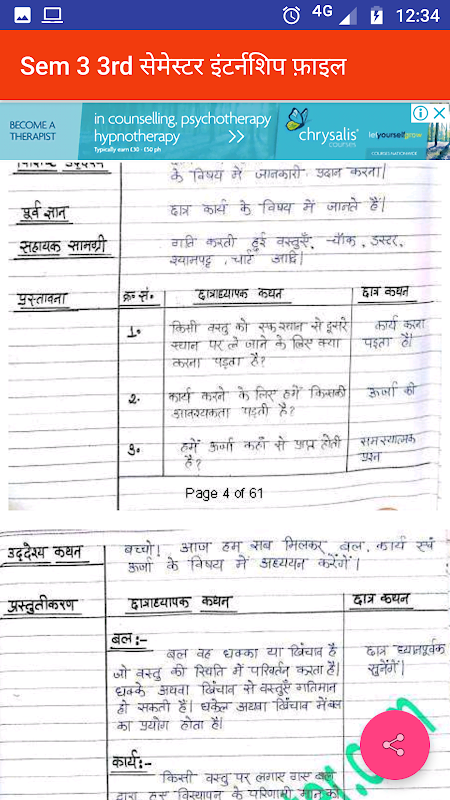 4G 12:34
Sem 3 3rd सेमेस्टर इंटर्नशिप फ़ाइल
BECOME A THERAPIST
in counselling, psychotherapy
hypnotherapy >>
Typically earn £30 - £50 ph
chrysalis
courses
letyourselfgrow
के विषय में जानकारी प्रदान करना।
पूर्व ज्ञान छात्र कार्य के विषय में जानते हैं।
सहायक सामग्री गति करती हुई वस्तुएँ, चॉक, डस्टर,
श्यामपट्ट, चार्ट आदि।
प्रस्तावना क्र॰सं॰ छात्राध्यापक कथन छात्र कथन
1. किसी वस्तु को एक स्थान से दूसरे कार्य करना
स्थान पर ले जाने के लिए क्या पड़ता है।
करना पड़ता है?
2. कार्य करने के लिए हमें किसकी ऊर्जा की
आवश्यकता पड़ती है?
3. हमें ऊर्जा कहाँ से प्राप्त होती समस्यात्मक
है? प्रश्न
Page 4 of 61
उद्देश्य कथन बच्चो! आज हम सब मिलकर बल, कार्य एवं
ऊर्जा के विषय में अध्ययन करेंगें।
प्रस्तुतीकरण छात्राध्यापक कथन छात्र कथन
बल:-
बल वह धक्का या खिंचाव है छात्र ध्यानपूर्वक
जो वस्तु की स्थिति में परिवर्तन करता है। सुनेंगें।
धक्के अथवा खिंचाव से वस्तुएँ गतिमान
हो सकती हैं। धकेल अथवा खिंचाव में बल
का प्रयोग होता है।
कार्य:-
किसी वस्तु पर लगाए गए बल
द्वारा